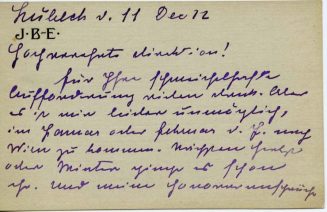 Lübeck d. 11 Dec 12
J·B·E·
Hochverehrte Direktion!
für Ihre schmeichelhafte
Aufforderung vielen Dank. Aber
es ist mir leider unmöglich,
im Januar oder Februar d. J. nach
Wien zu kommen. Nächsten Herbst
oder Winter ginge es schon
eher. Und meine Honoraransprüche